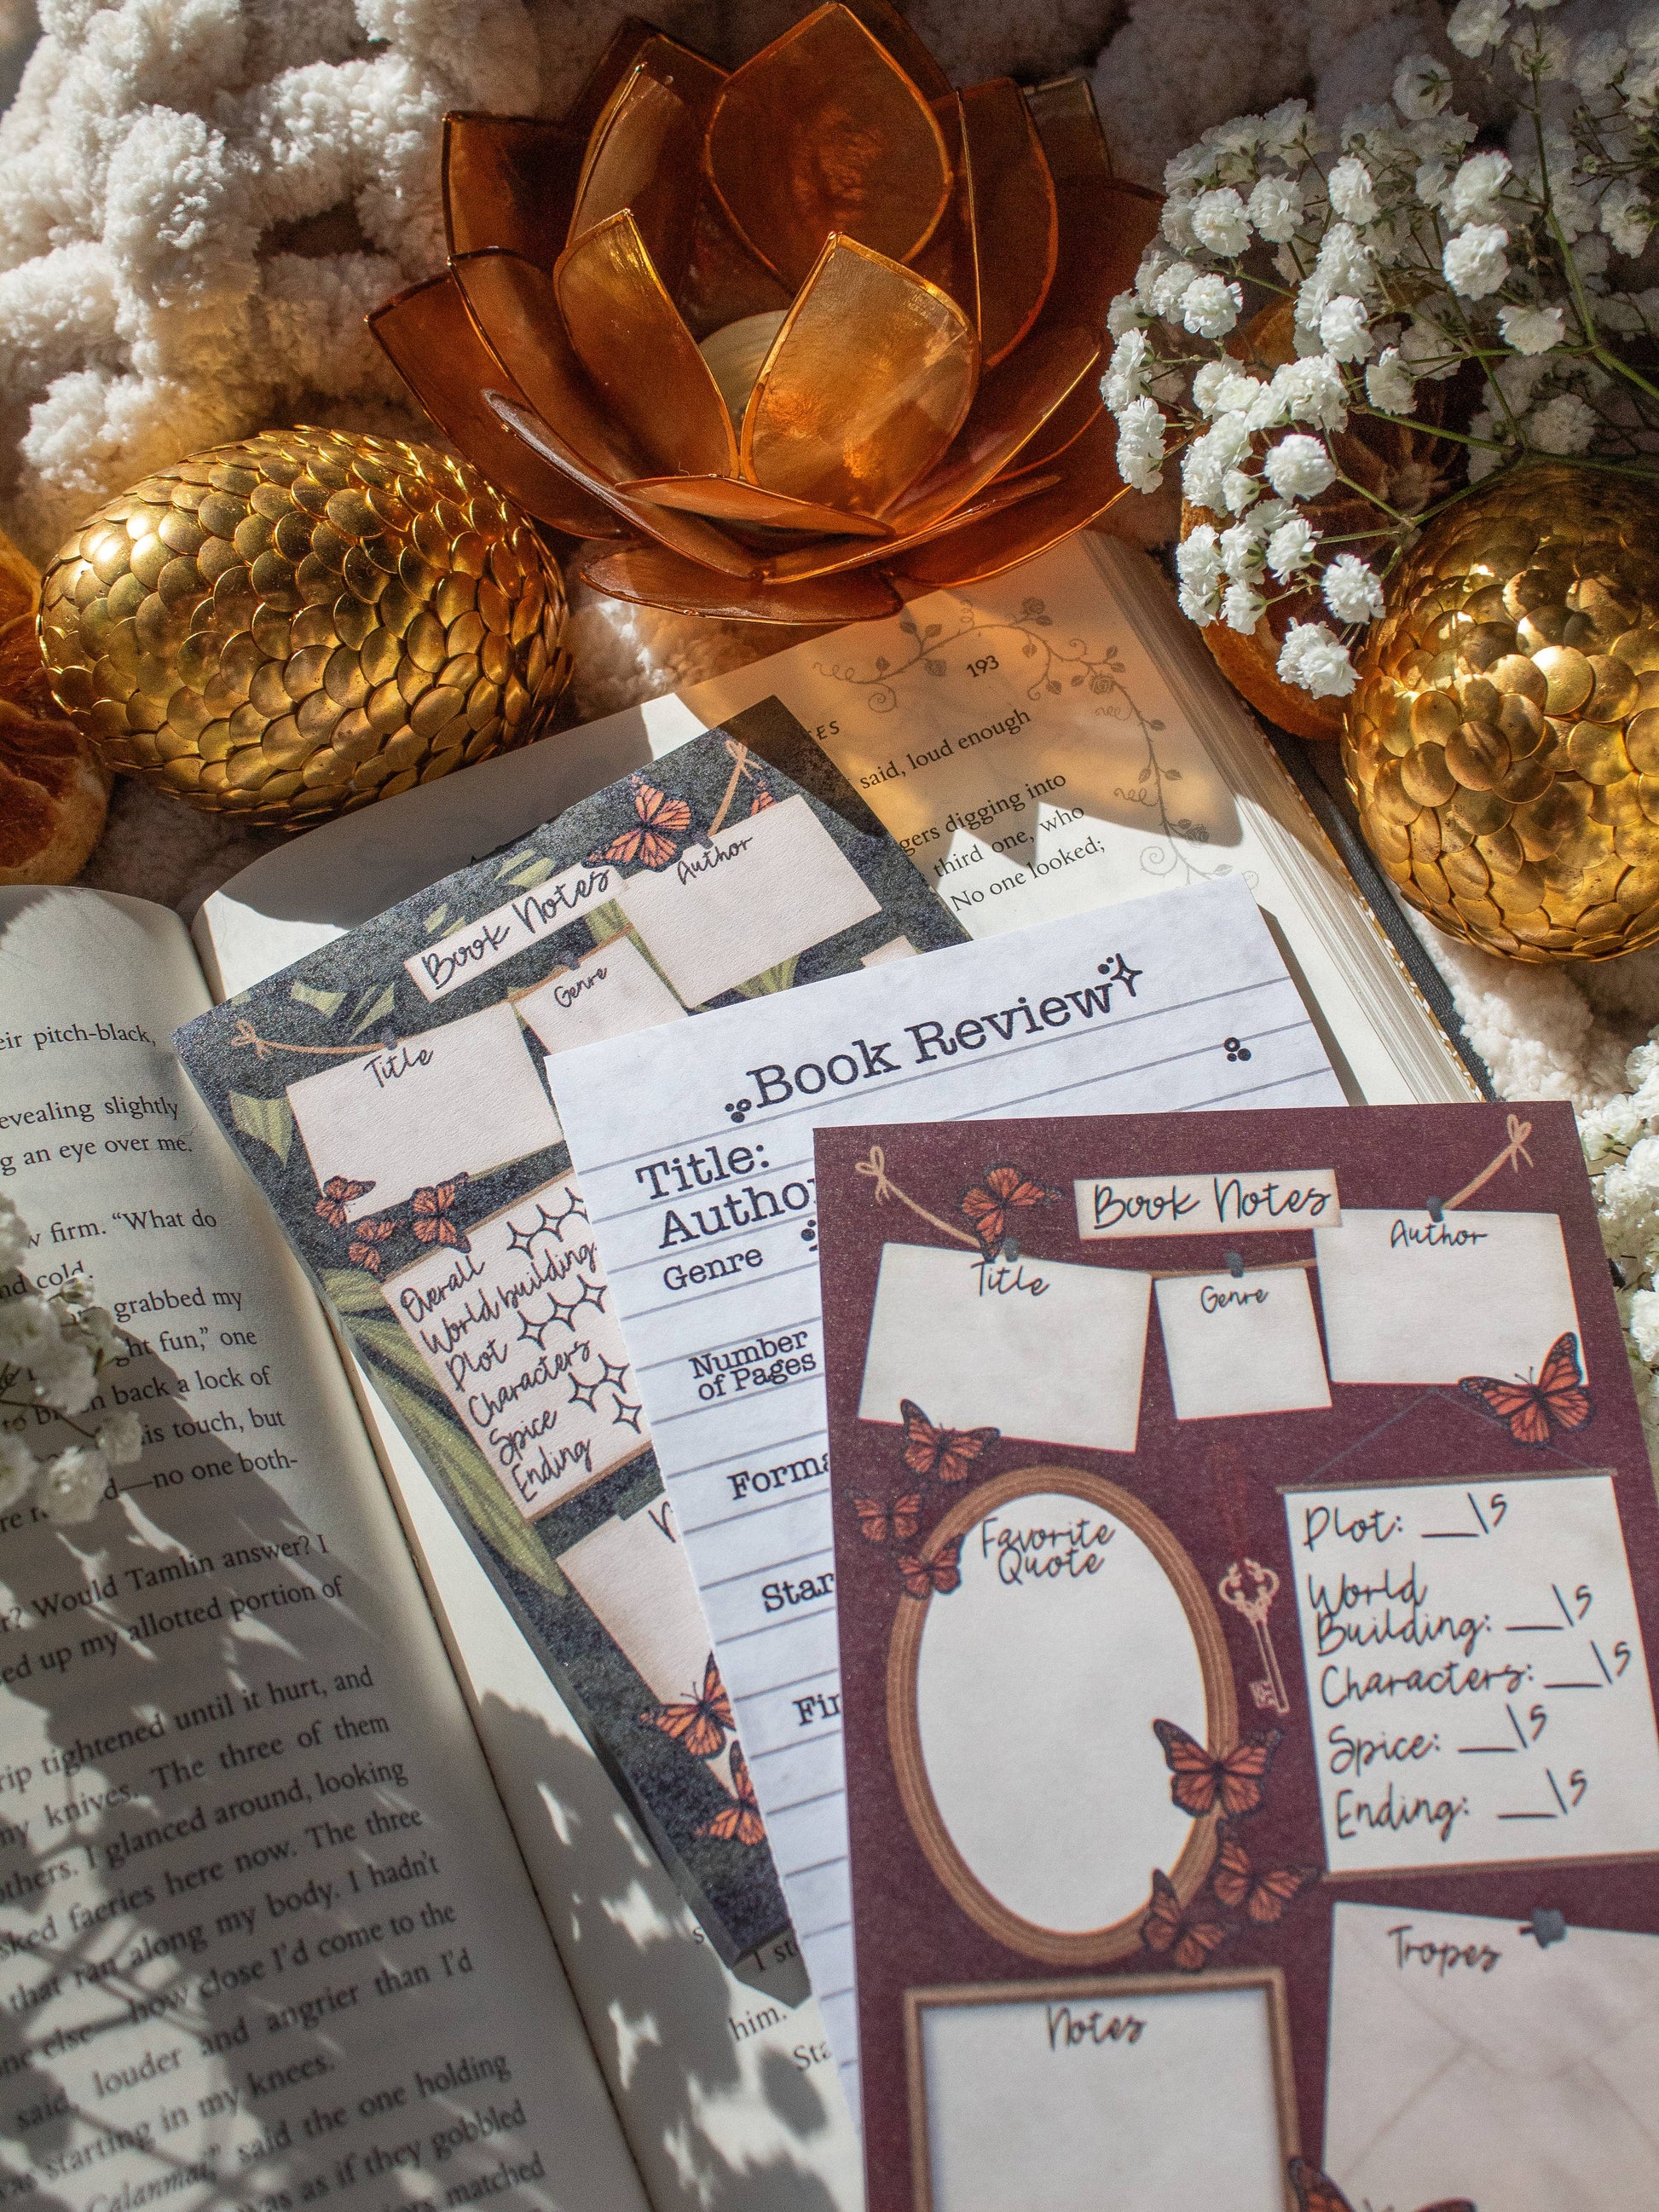 eir pitch-black,
evealing slightly
g an eye over me.
w firm. “What do
nd cold.
grabbed my
ght fun,” one
back a lock of
is touch, but
d—no one both-
r? Would Tamlin answer? I
ed up my allotted portion of
rip tightened until it hurt, and
my knives. The three of them
others. I glanced around, looking
sked faeries here now. The three
that ran along my body. I hadn’t
ne else—how close I’d come to the
said, louder and angrier than I’d
was starting in my knees.
Calanmai,” said the one holding
was as if they gobbled
matched
193
said, loud enough
gers digging into
third one, who
No one looked;
him.
Book Notes
Title
Genre
Author
Overall
World building
Plot
Characters
Spice
Ending
Book Review
Title:
Autho
Genre
Number
of Pages
Forma
Star
Fi
Book Notes
Title
Genre
Author
Favorite
Quote
Plot: __\5
World
Building: __\5
Characters: __\5
Spice: __\5
Ending: __\5
Notes
Tropes